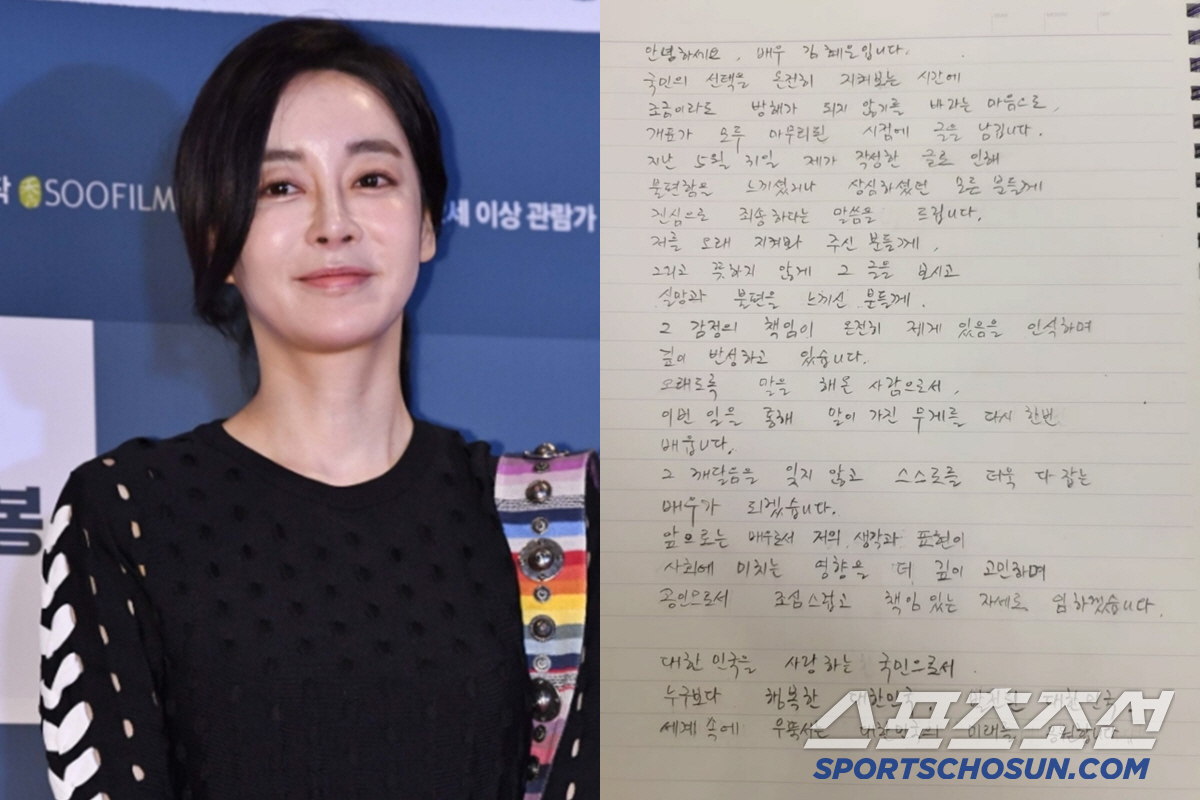 작
SOOFILM
세 이상 관람가
봉
안녕하세요, 배우 김혜은입니다.
국민의 선택을 온전히 지켜보는 시간에
조금이라도 방해가 되지 않기를 바라는 마음으로,
개표가 모두 마무리된 시점에 글을 남깁니다.
지난 5월 31일 제가 작성한 글로 인해
불편함을 느끼셨거나 상심하셨던 모든 분들께
진심으로 죄송하다는 말씀을 드립니다.
저를 오래 지켜봐 주신 분들께,
그리고 뜻하지 않게 그 글을 보시고
실망과 불편을 느끼신 분들께.
그 감정의 책임이 온전히 제게 있음을 인식하며
깊이 반성하고 있습니다.
오래도록 말을 해온 사람으로서,
이번 일을 통해 말이 가진 무게를 다시 한번
배웁니다.
그 깨달음을 잊지 않고 스스로를 더욱 다 잡는
배우가 되겠습니다.
앞으로는 배우로서 저의 생각과 표현이
사회에 미치는 영향을 더 깊이 고민하며
공인으로서 조심스럽고 책임 있는 자세로 임하겠습니다.
대한민국을 사랑하는 국민으로서
누구보다 행복한 대한민국, 대한민국,
세계 속에 우뚝서는 대한민국의 미래를 응원합니다.
스포츠조선
SPORTSCHOSUN.COM